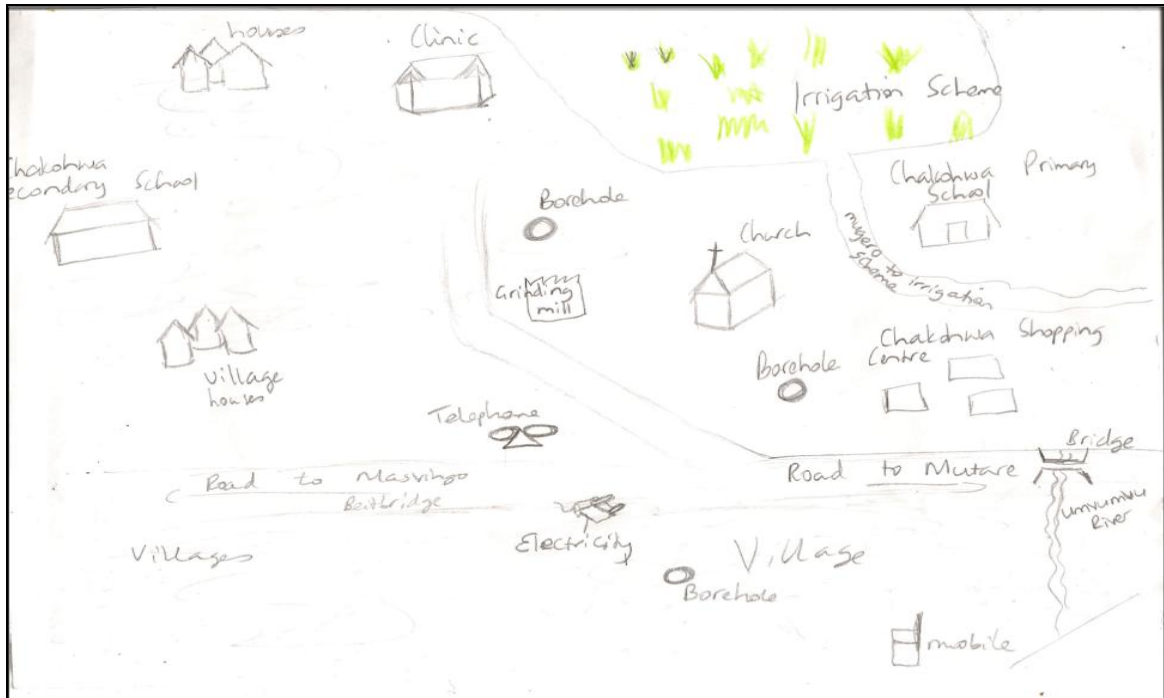 houses
Clinic
Irrigation Scheme
Chakohwa
Secondary School
Chakohwa Primary
School
Borehole
Church
mugero to irrigation
scheme
Grinding
mill
Chakohwa Shopping
Centre
Borehole
village
houses
Telephone
Bridge
Road to Masvingo
Beitbridge
Road to Mutare
umvumvu
River
Electricity
Villages
Village
Borehole
mobile